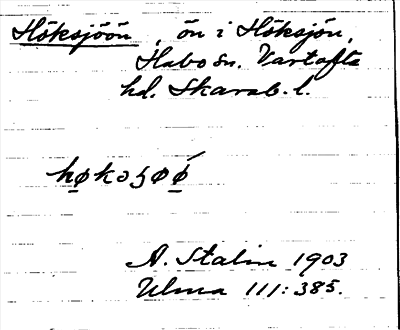 Höksjöön, ön i Höksjön,
Habo sn. Vartofta
hd. Skarab. l.
høkoʒøǿ
A. Stalin 1903
Ulma 111:385.